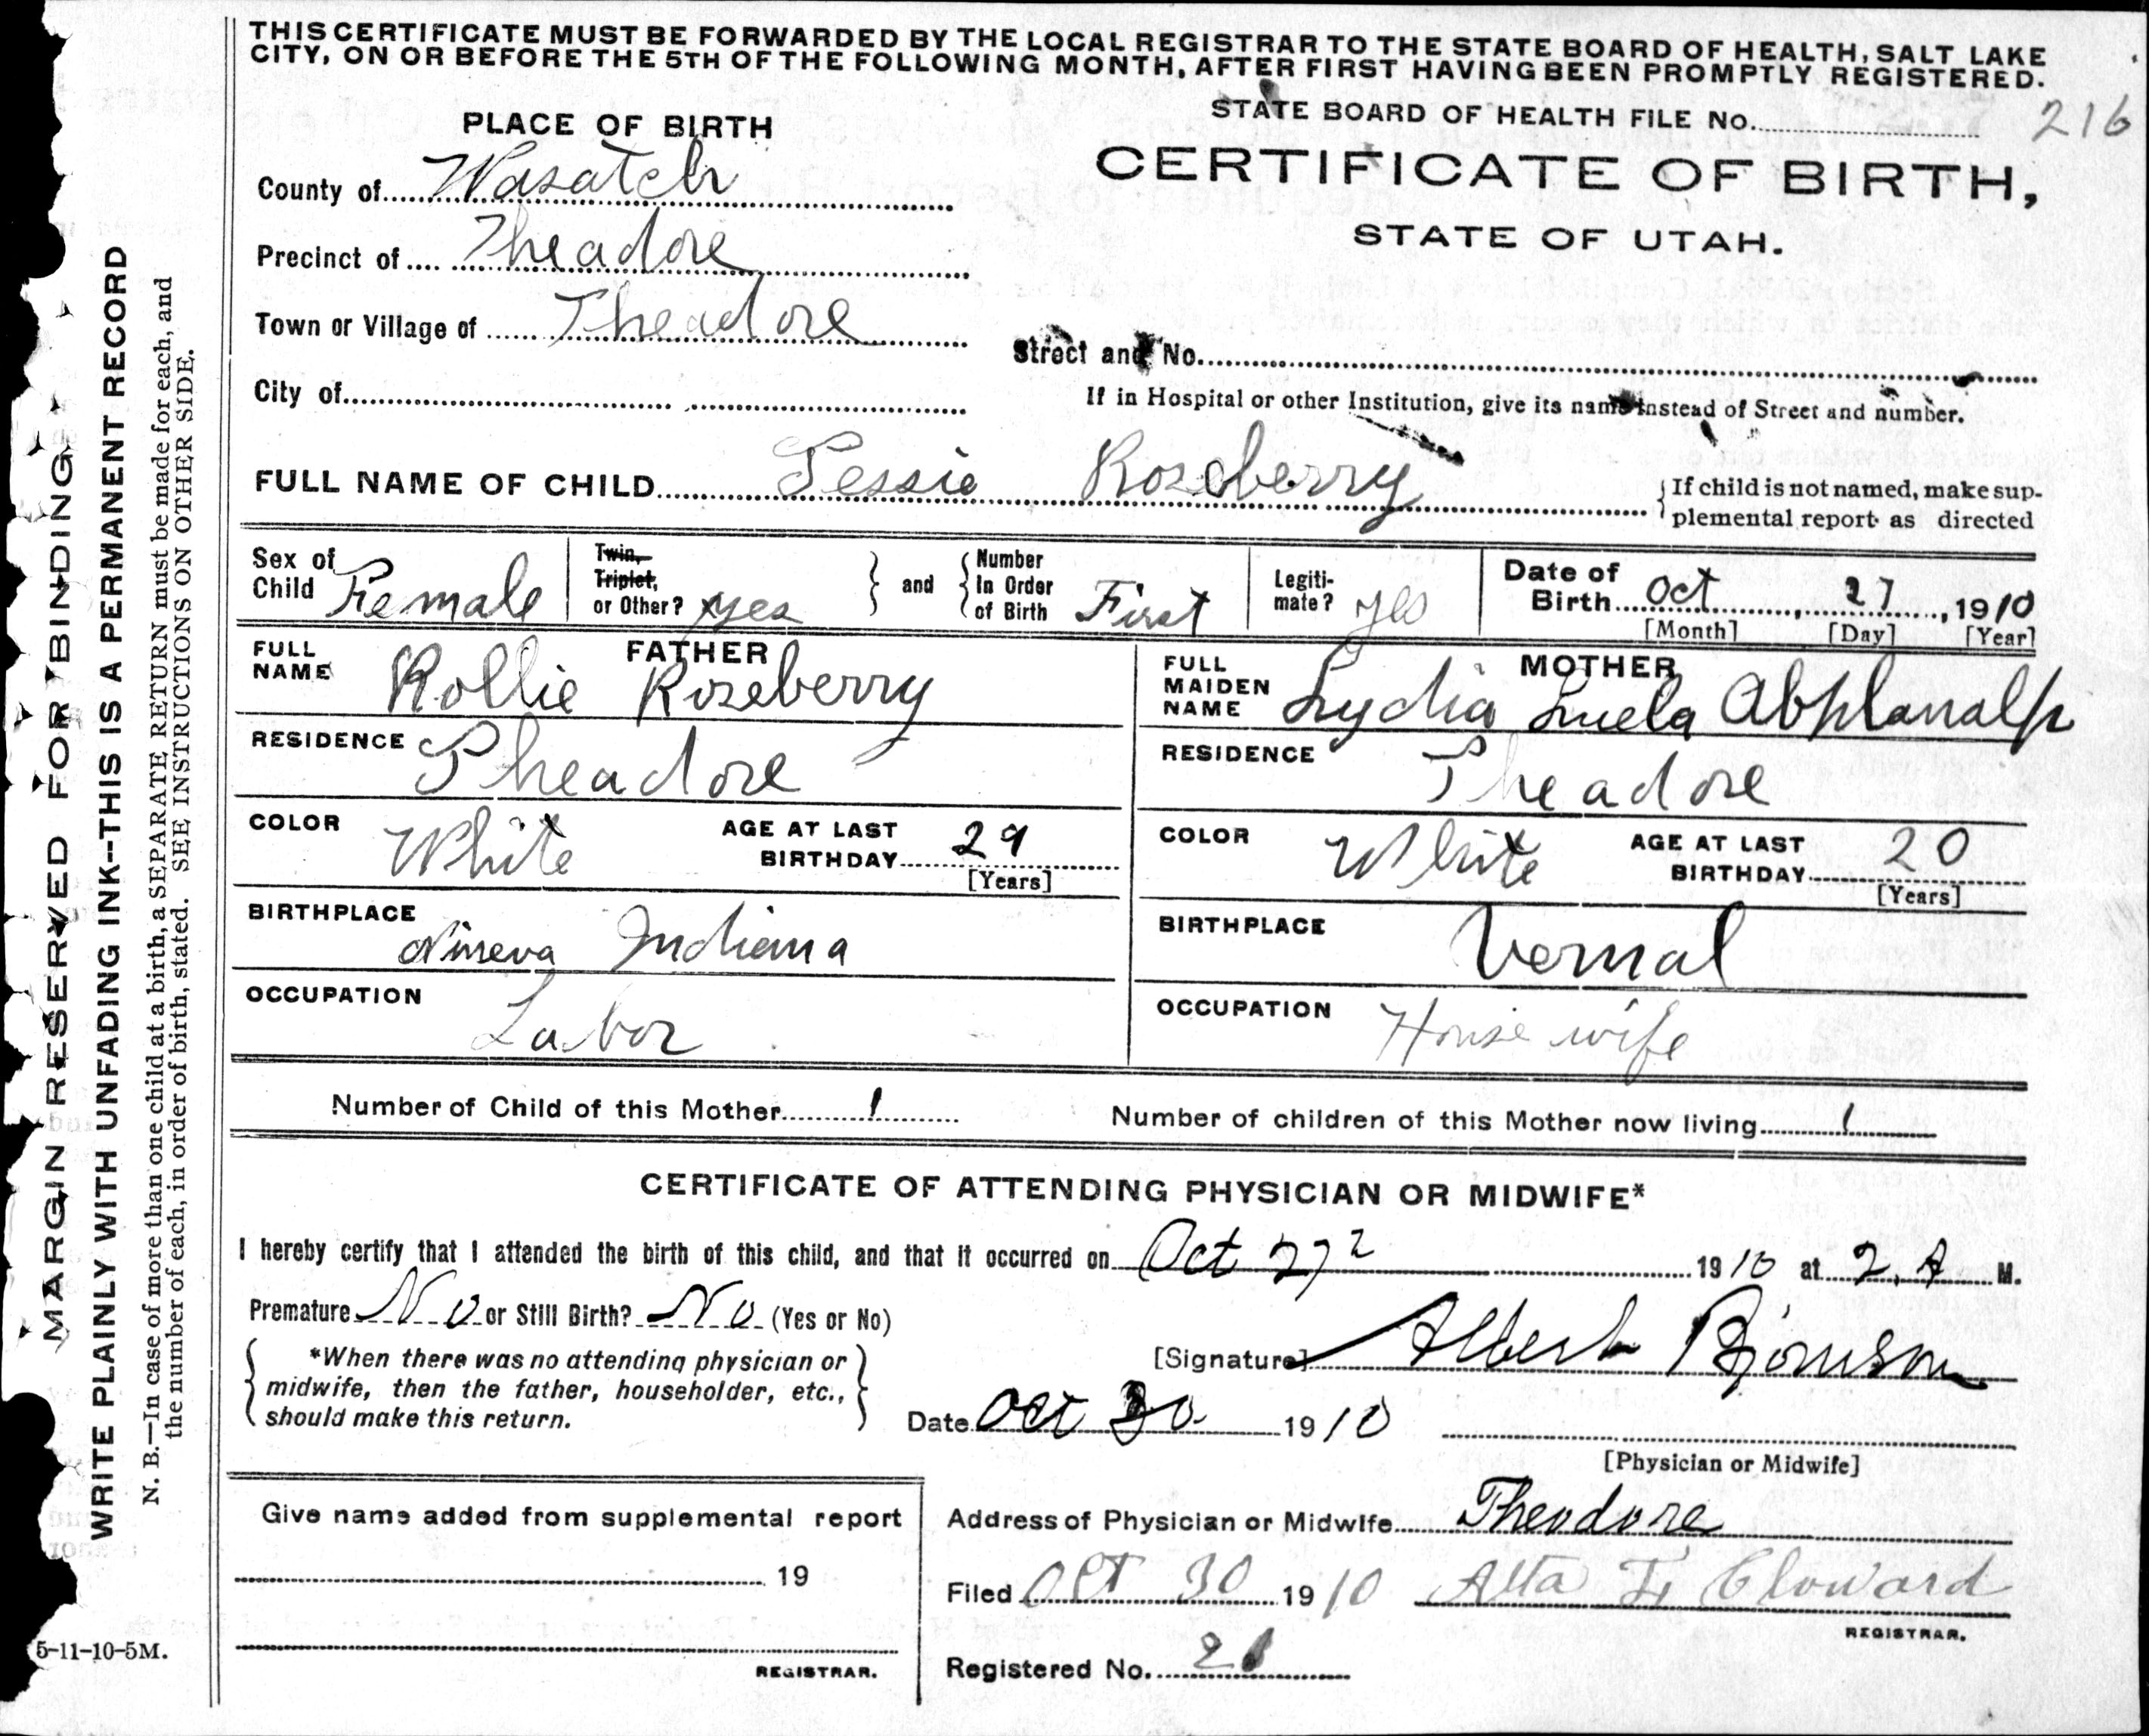 THIS CERTIFICATE MUST BE FORWARDED BY THE LOCAL REGISTRAR TO THE STATE BOARD OF HEALTH, SALT LAKE
CITY, ON OR BEFORE THE 5TH OF THE FOLLOWING MONTH, AFTER FIRST HAVING BEEN PROMPTLY REGISTERED.
STATE BOARD OF HEALTH FILE No. 216
PLACE OF BIRTH
CERTIFICATE OF BIRTH,
STATE OF UTAH.
County of Wasatch
Precinct of Theadore
Town or Village of Theadore
Street and No.
City of
If in Hospital or other Institution, give its name instead of Street and number.
FULL NAME OF CHILD Tessie Roseberry
{If child is not named, make sup-
plemental report as directed
Sex of Child Female
Twin, Triplet, or Other? yes
and {Number In Order of Birth First
Legiti-mate? yes
Date of Birth Oct 27, 1910
[Month] [Day] [Year]
FATHER
FULL NAME Rollie Roseberry
RESIDENCE Theadore
COLOR White
AGE AT LAST BIRTHDAY 29
[Years]
BIRTHPLACE Nineva Indiana
OCCUPATION Labor
MOTHER
FULL MAIDEN NAME Lydia Luela Abplanalp
RESIDENCE Theadore
COLOR White
AGE AT LAST BIRTHDAY 20
[Years]
BIRTHPLACE Vernal
OCCUPATION House wife
Number of Child of this Mother 1
Number of children of this Mother now living 1
CERTIFICATE OF ATTENDING PHYSICIAN OR MIDWIFE*
I hereby certify that I attended the birth of this child, and that it occurred on Oct 27 1910 at 2. A M.
Premature No or Still Birth? No (Yes or No)
[Signature] Albert Bjornson
*When there was no attending physician or
midwife, then the father, householder, etc.,
should make this return.
Date Oct 30 1910
[Physician or Midwife]
Give name added from supplemental report
19
REGISTRAR.
Address of Physician or Midwife Theodore
Filed Oct 30 1910 Alta F. Cloward
REGISTRAR.
Registered No. 21
MARGIN RESERVED FOR BINDING
WRITE PLAINLY WITH UNFADING INK--THIS IS A PERMANENT RECORD
N. B.—In case of more than one child at a birth, a SEPARATE RETURN must be made for each, and
the number of each, in order of birth, stated. SEE INSTRUCTIONS ON OTHER SIDE.
5-11-10-5M.